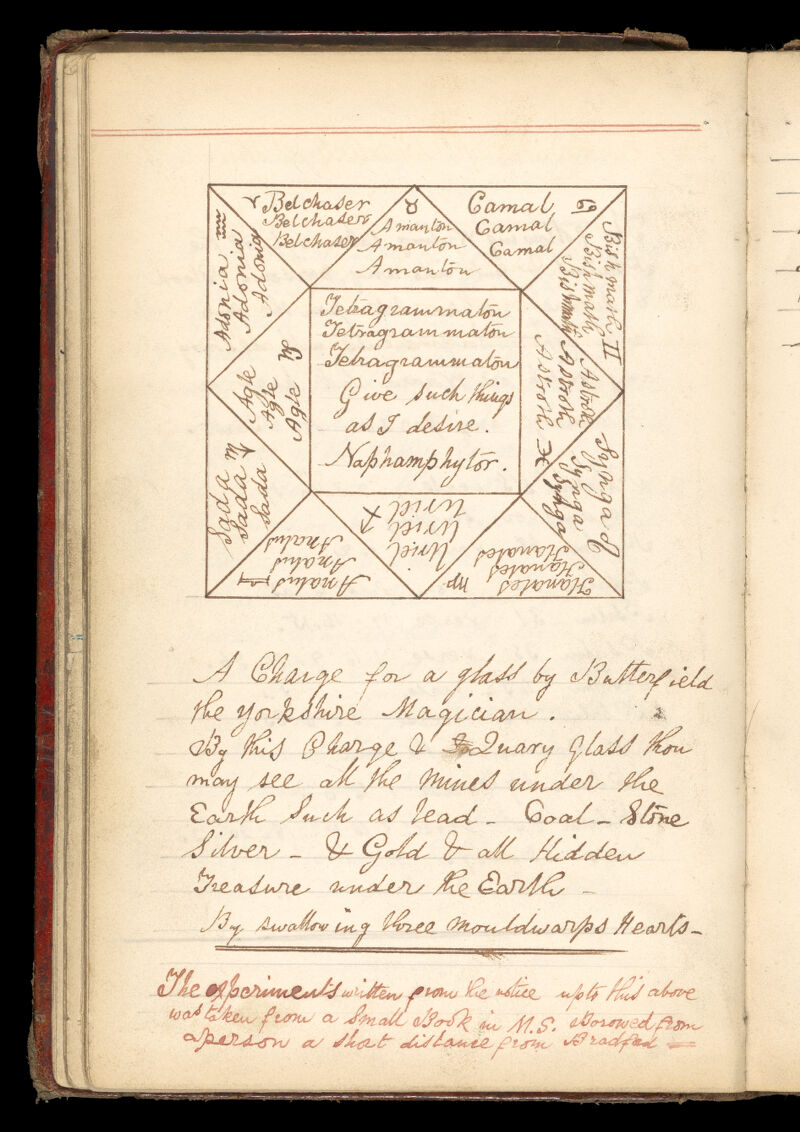 ♈ Belchaser
Belchaser
Belchaser
♉
Amanton
Amanton
Amanton
Camal ♋
Camal
Camal
Bishmath ♊
Bishmath
Bishmath
Adonia ♒
Adonia
Adonia
Tetragrammaton
Tetragrammaton
Tetragrammaton
Give such things
as I desire.
Naphamphytor.
Agle ♑
Agle
Agle
Astroth
Astroth
Astroth ♓
Sada ♏
Sada
Sada
Synga ♌
Synga
Synga
Uriel
Uriel ♐
Uriel
Analus ♎
Analus
Analus
Hanates
Hanates
Hanates ♍
A Charge for a glass by Butterfield
the Yorkshire Magician.
By this Charge & Quary Glass thou
may see all the Mines under the
Earth Such as lead - Coal - Stone
Silver - & Gold & all Hidden
Treasure under the Earth -
By swallowing three mouldwarps Hearts -
The experiments written from the notice upto this above
was taken from a Small Book in M.S. Borowed from
a person a short distance from Bradford